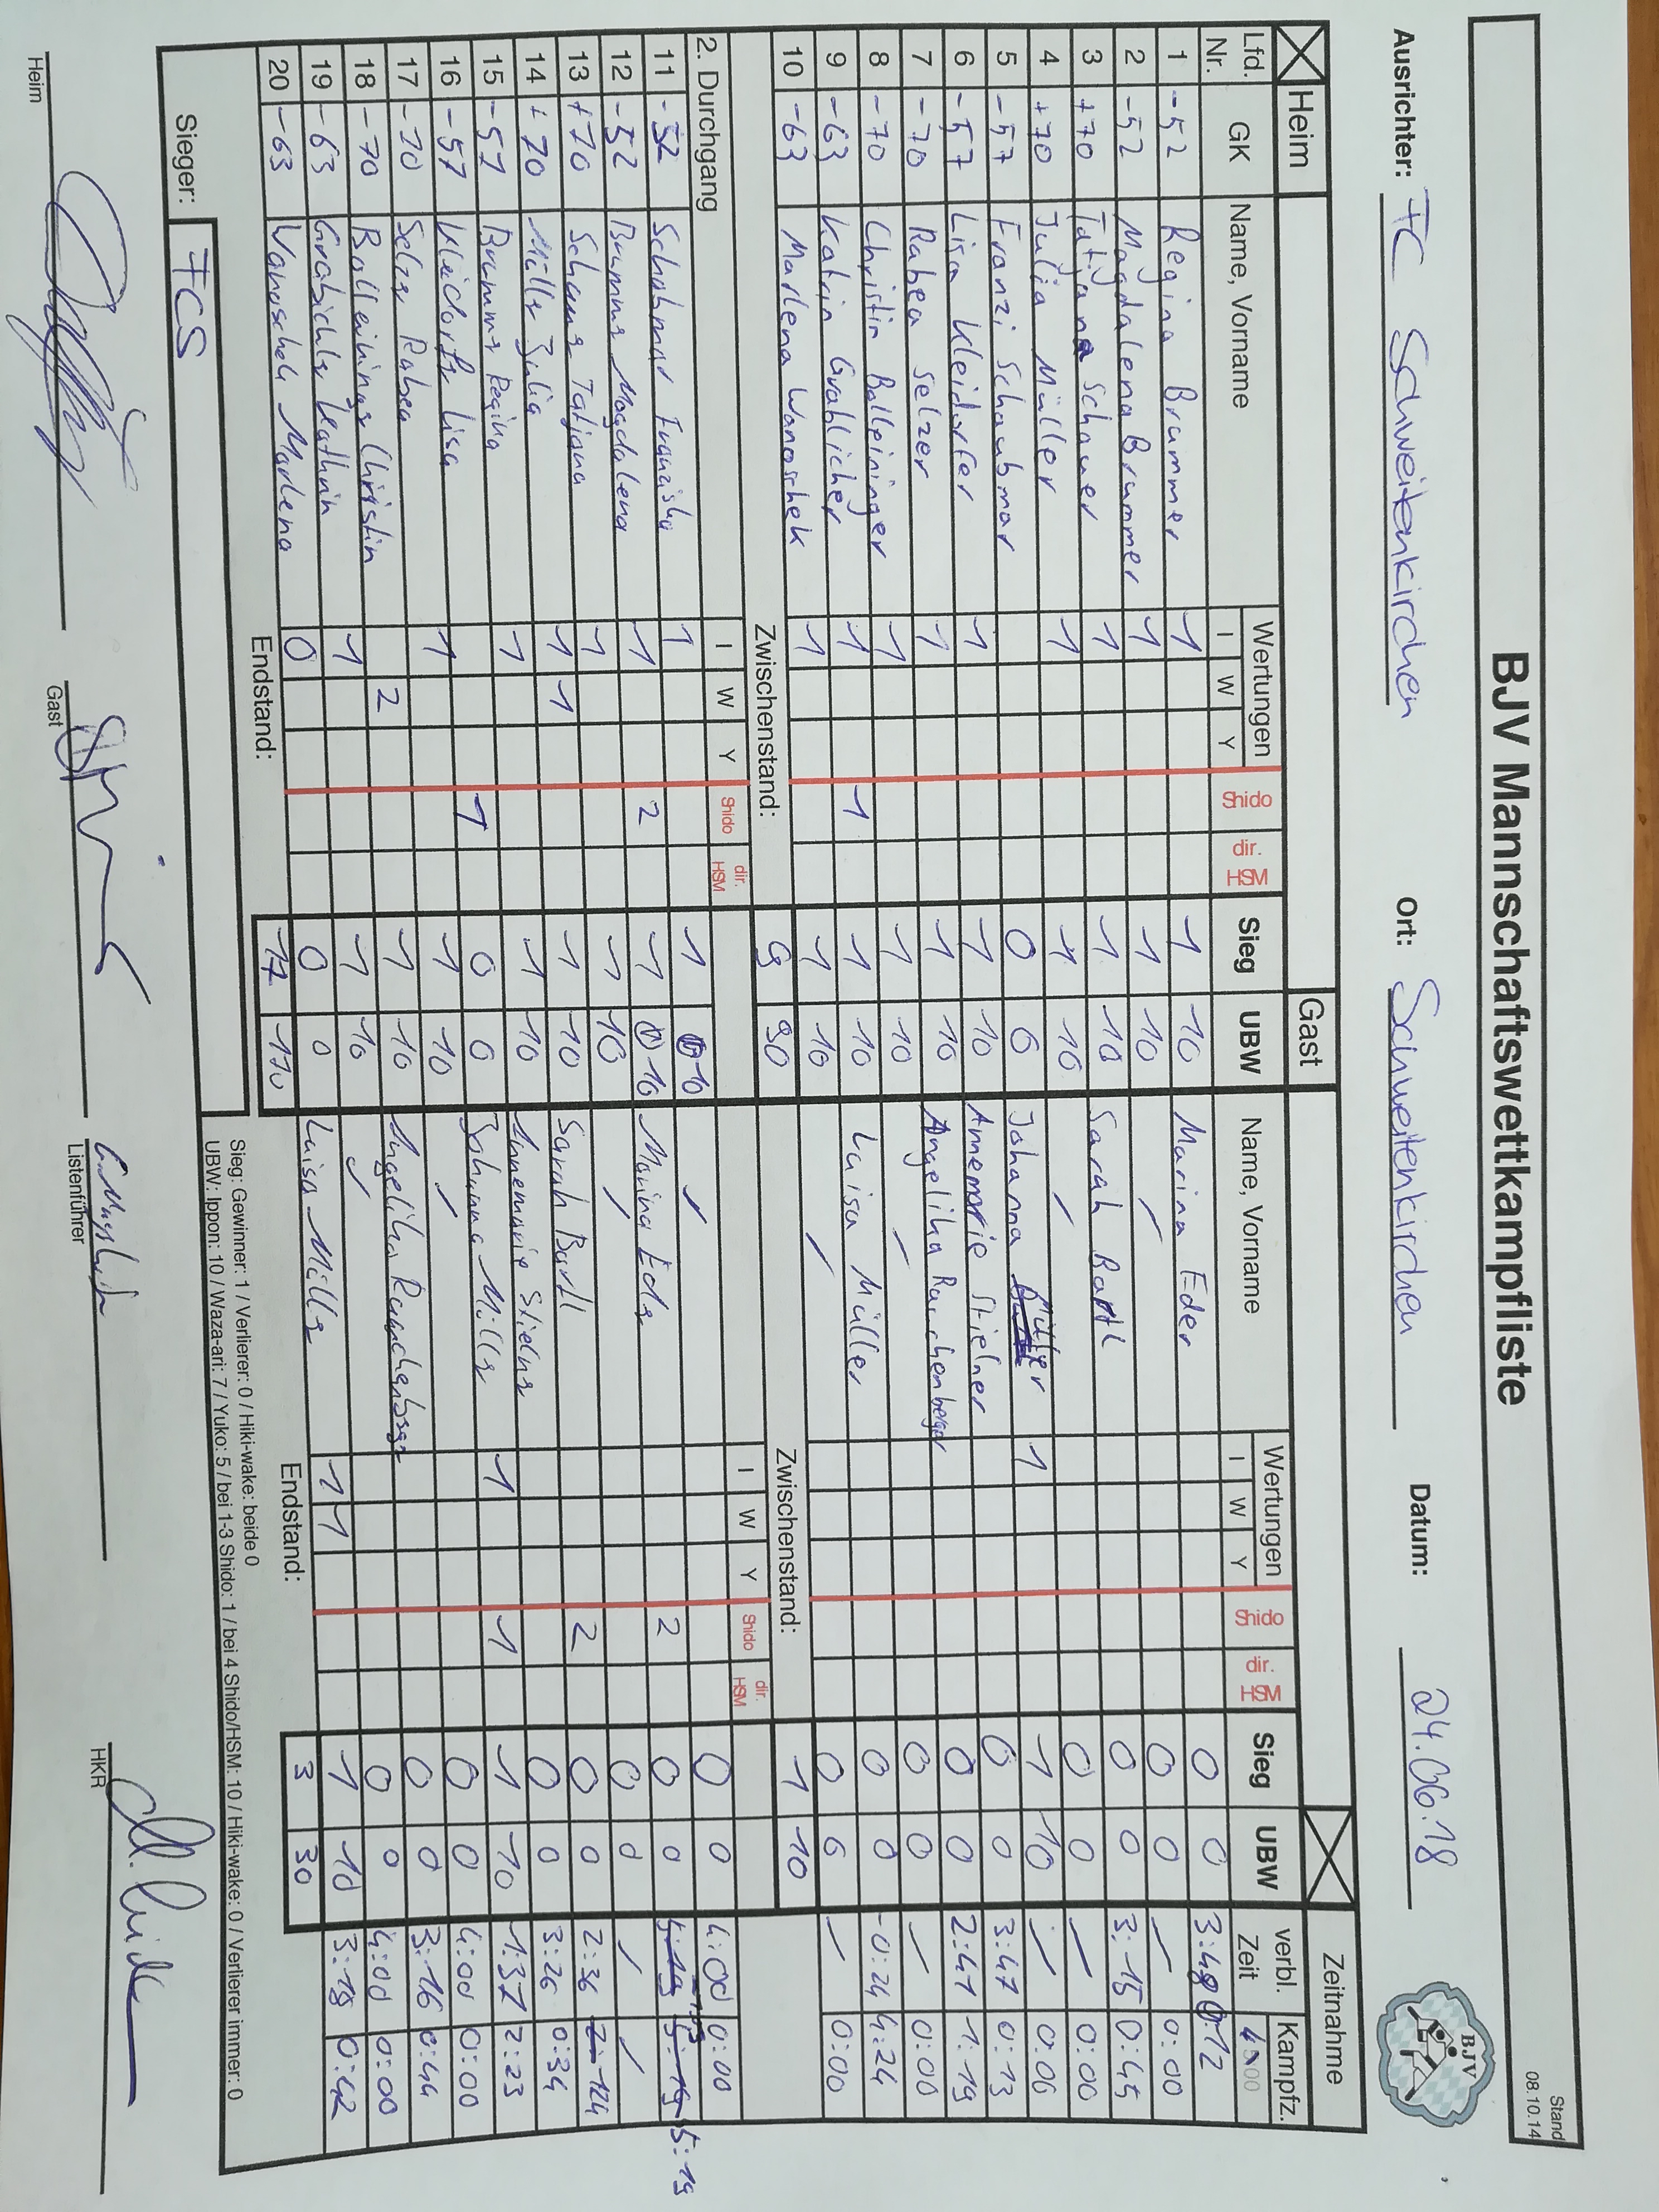 BJV Mannschaftswettkampfliste
Stand
08.10.14
Ausrichter: FC Schweitenkirchen Ort: Schweitenkirchen Datum: 24.06.18
BJV
Heim Gast Zeitnahme
Lfd. Nr. GK Name, Vorname Wertungen I W Y Shido dir. HSM Sieg UBW Name, Vorname Wertungen I W Y Shido dir. HSM Sieg UBW verbl. Zeit Kampfz.
1 -52 Regina Brummer 1 1 10 Marina Eder 0 0 3:48 0:12
2 -52 Magdalena Brummer 1 1 10 / 0 0 / 0:00
3 +70 Tatjana Schauer 1 1 10 Sarah Bartl 0 0 3:15 0:45
4 +70 Julia Müller 1 1 10 / 0 0 / 0:00
5 -57 Franzi Schaubmar 0 0 Johanna 1 1 10 / 0:00
6 -57 Lisa Kleidorfer 1 1 10 Annemarie Stielner 0 0 3:47 0:13
7 -70 Rabea Selzer 1 1 10 Angelika Rauchenberger 0 0 2:41 1:19
8 -70 Christin Balleininger 1 1 10 / 0 0 / 0:00
9 -63 Katrin Grablicher 1 1 1 10 Luisa Müller 0 0 -0:24 4:24
10 -63 Marlena Wanoschek 1 1 10 / 0 0 / 0:00
Zwischenstand: 9 90 Zwischenstand: 1 10
2. Durchgang I W Y Shido dir. HSM I W Y Shido dir. HSM
11 -52 Schabmar Franziska 1 1 10 / 0 0 4:00 0:00
12 -52 Brummer Magdalena 1 2 1 10 Marina Eder 2 0 0 5:19
13 +70 Schauer Tatjana 1 1 10 / 0 0 / /
14 +70 Müller Julia 1 1 1 10 Sarah Bartl 2 0 0 2:36 1:24
15 -57 Brummer Regina 1 1 10 Annemarie Stielner 0 0 3:26 0:34
16 -57 Kleidorfer Lisa 1 0 0 Johanna Müller 1 1 1 10 1:37 2:23
17 -70 Selzer Rabea 1 1 10 / 0 0 4:00 0:00
18 -70 Balleininger Christin 2 1 10 Angelika Rauchenberger 0 0 3:16 0:44
19 -63 Grablicher Kathrin 1 1 10 / 0 0 4:00 0:00
20 -63 Wanoschek Marlena 0 0 0 Luisa Müller 1 1 1 10 3:18 0:42
Endstand: 17 170 Endstand: 3 30
Sieger: FCS
Sieg: Gewinner: 1 / Verlierer: 0 / Hiki-wake: beide 0
UBW: Ippon: 10 / Waza-ari: 7 / Yuko: 5 / bei 1-3 Shido: 1 / bei 4 Shido/HSM: 10 / Hiki-wake: 0 / Verlierer immer: 0
Heim Gast Listenführer HKR